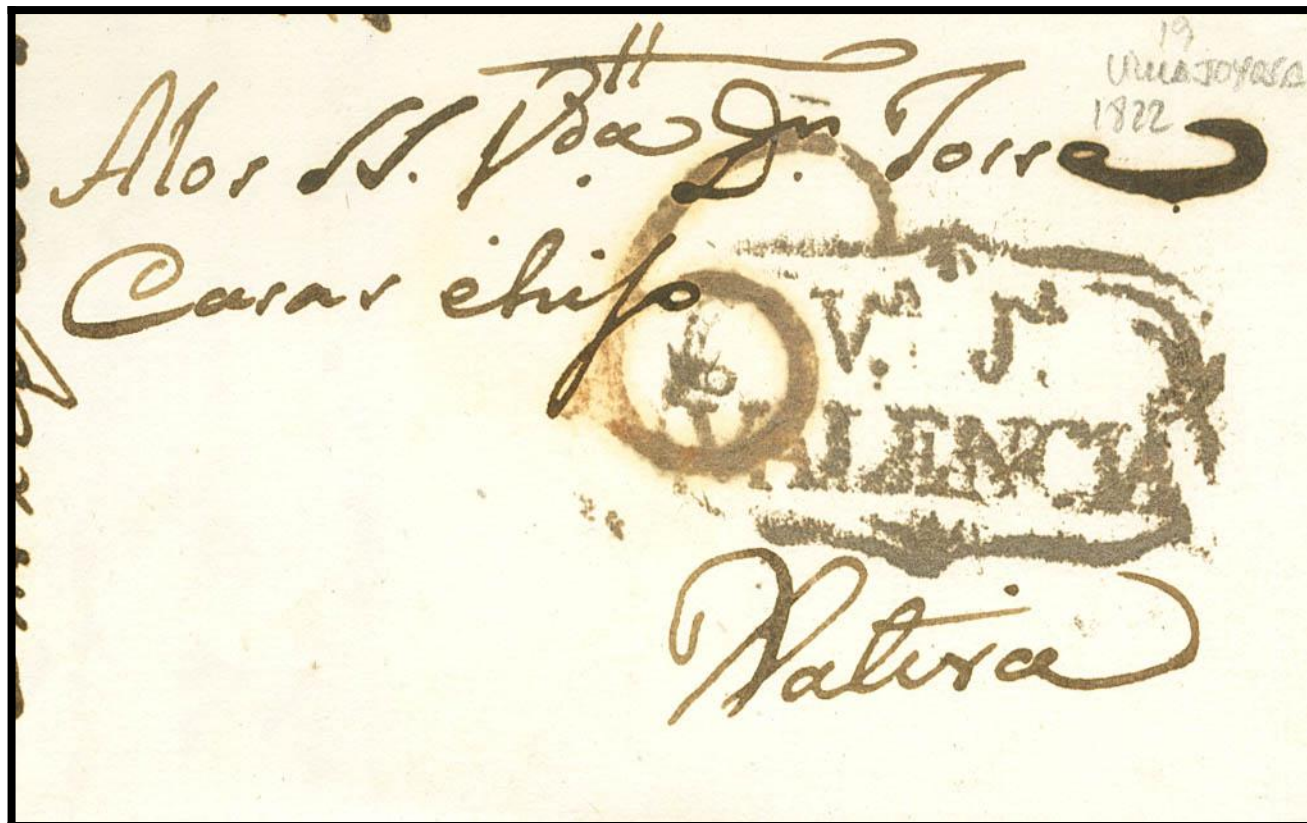 19
VILLAJOYOSA
1822
Alos SS. Vda Dn. Torra
Casas éhijo
Vn. Ja.
VALENCIA
Xativa